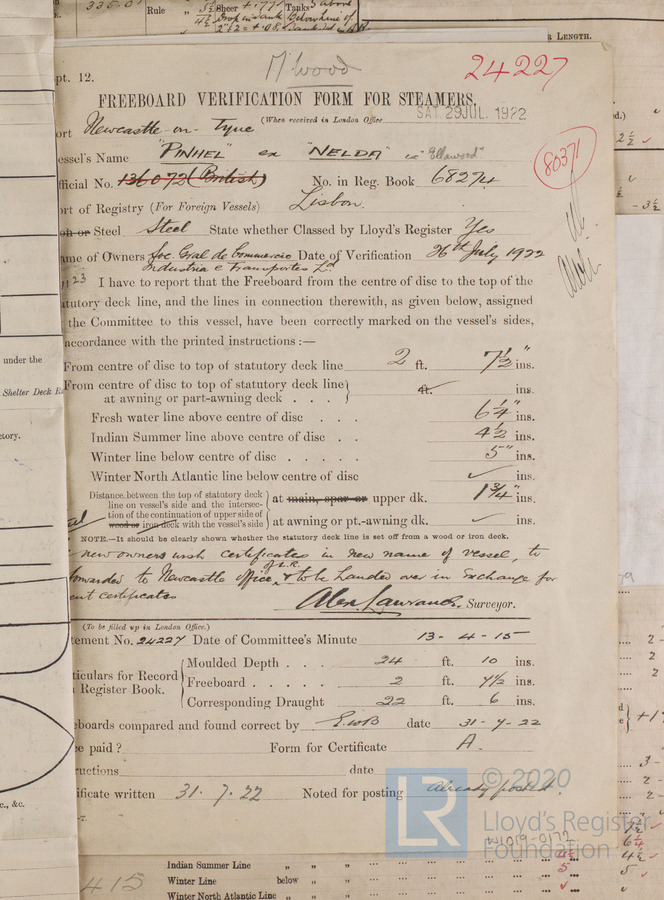 Rule
Sheer
Tanks
LENGTH.
M'Wood
24227
pt. 12.
FREEBOARD VERIFICATION FORM FOR STEAMERS.
(When received in London Office
SAT. 29 JUL. 1922
ort Newcastle-on-Tyne
essel's Name "PINHEL" ex "NELDA" ex "Ellawood"
80371
fficial No. 136072 (British) No. in Reg. Book 68274
ort of Registry (For Foreign Vessels) Lisbon
on or Steel Steel State whether Classed by Lloyd's Register Yes
ame of Owners Soc. Gral de Commercio Date of Verification 26th July 1922
Industria e Transportes Ld
I have to report that the Freeboard from the centre of disc to the top of the
atutory deck line, and the lines in connection therewith, as given below, assigned
the Committee to this vessel, have been correctly marked on the vessel's sides,
accordance with the printed instructions :—
From centre of disc to top of statutory deck line 2 ft. 7½" ins.
From centre of disc to top of statutory deck line
at awning or part-awning deck . . . ft. ins.
Fresh water line above centre of disc . . . 6¼" ins.
Indian Summer line above centre of disc . . 4½ ins.
Winter line below centre of disc . . . . . 5" ins.
Winter North Atlantic line below centre of disc ✓ ins.
Distance between the top of statutory deck
line on vessel's side and the intersec-
tion of the continuation of upper side of
wood or iron deck with the vessel's side
at main, spar or upper dk. 1¾" ins.
at awning or pt.-awning dk. ✓ ins.
NOTE.—It should be clearly shown whether the statutory deck line is set off from a wood or iron deck.
new owners wish certificates in new name of vessel, to
forwarded to Newcastle office of L.R. & to be handed over in exchange for
ent certificates
Alex Lawrance. Surveyor.
(To be filled up in London Office.)
tement No. 24227 Date of Committee's Minute 13-4-15
ticulars for Record
Register Book.
Moulded Depth . . . 24 ft. 10 ins.
Freeboard . . . . . 2 ft. 7½ ins.
Corresponding Draught 22 ft. 6 ins.
eboards compared and found correct by E.W.B date 31-7-22
ee paid ? Form for Certificate A.
ructions date
ificate written 31.7.22 Noted for posting already posted.
under the
Shelter Deck
tory.
c., &c.
LR
© 2020
Lloyd's Register
Foundation
W1019-0172
Indian Summer Line „ „ „
Winter Line below „ „
Winter North Atlantic Line „ „
415